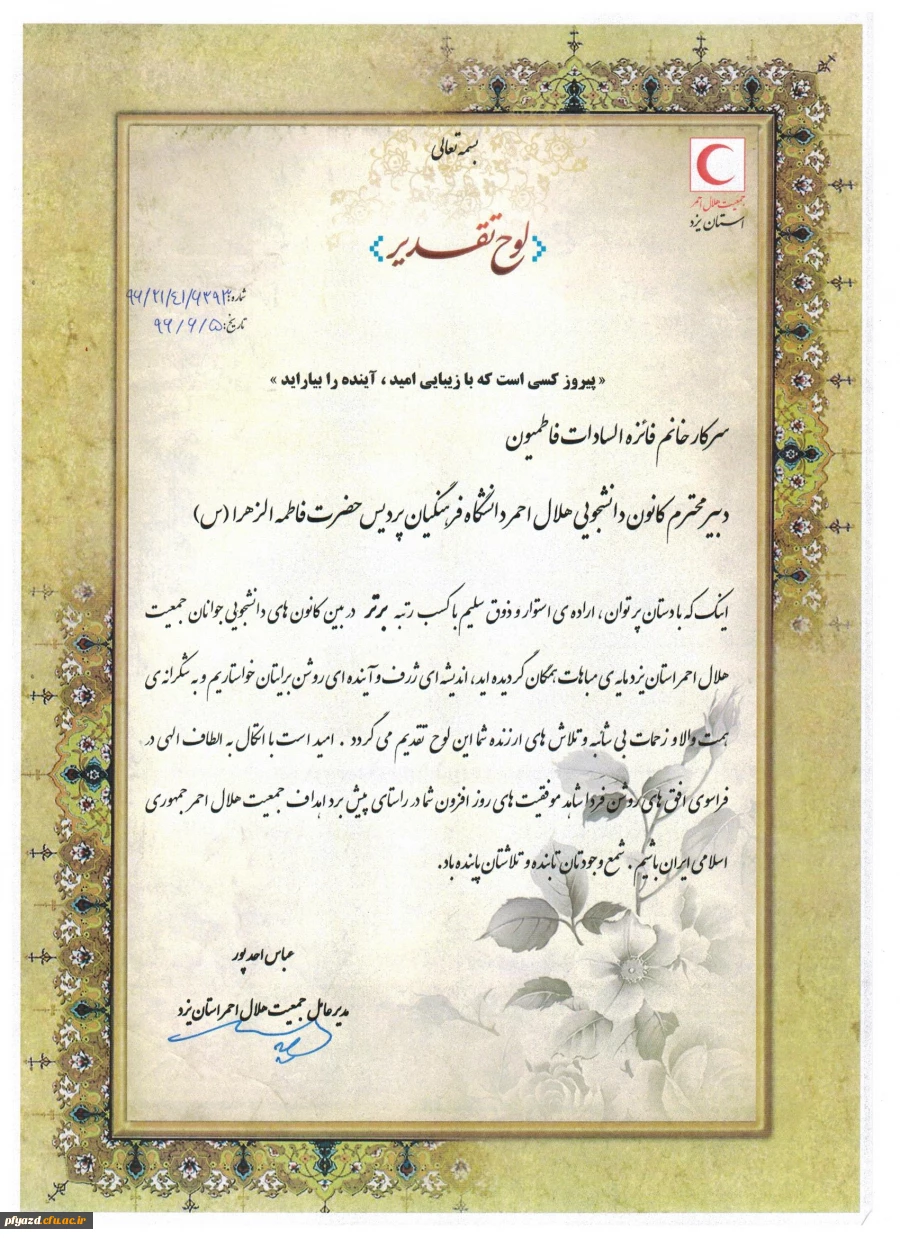 بسمه تعالی
جمعیت هلال احمر
استان یزد
لوح تقدیر
شماره: ۹۶/۲۱/۴۱/۶۳۹۳
تاریخ: ۹۶/۶/۵
« پیروز کسی است که با زیبایی امید ، آینده را بیاراید »
سرکار خانم فائزه السادات فاطمیون
دبیر محترم کانون دانشجویی هلال احمر دانشگاه فرهنگیان پردیس حضرت فاطمه الزهرا (س)
اینک که با دستان پر توان ، اراده ی استوار و ذوق سلیم با کسب رتبه برتر در بین کانون های دانشجویی جوانان جمعیت
هلال احمر استان یزد مایه ی مباهات همگان گردیده اید ، اندیشه ای ژرف و آینده ای روشن برایتان خواستاریم و به شکرانه ی
همت والا و زحمات بی شائبه و تلاش های ارزنده شما این لوح تقدیم می گردد . امید است با اتکال به الطاف الهی در
فراسوی افق های روشن فردا شاهد موفقیت های روز افزون شما در راستای پیش برد اهداف جمعیت هلال احمر جمهوری
اسلامی ایران باشیم . شمع وجودتان تابنده و تلاشتان پاینده باد.
عباس احدپور
مدیر عامل جمعیت هلال احمر استان یزد
pfyazd.cfu.ac.ir